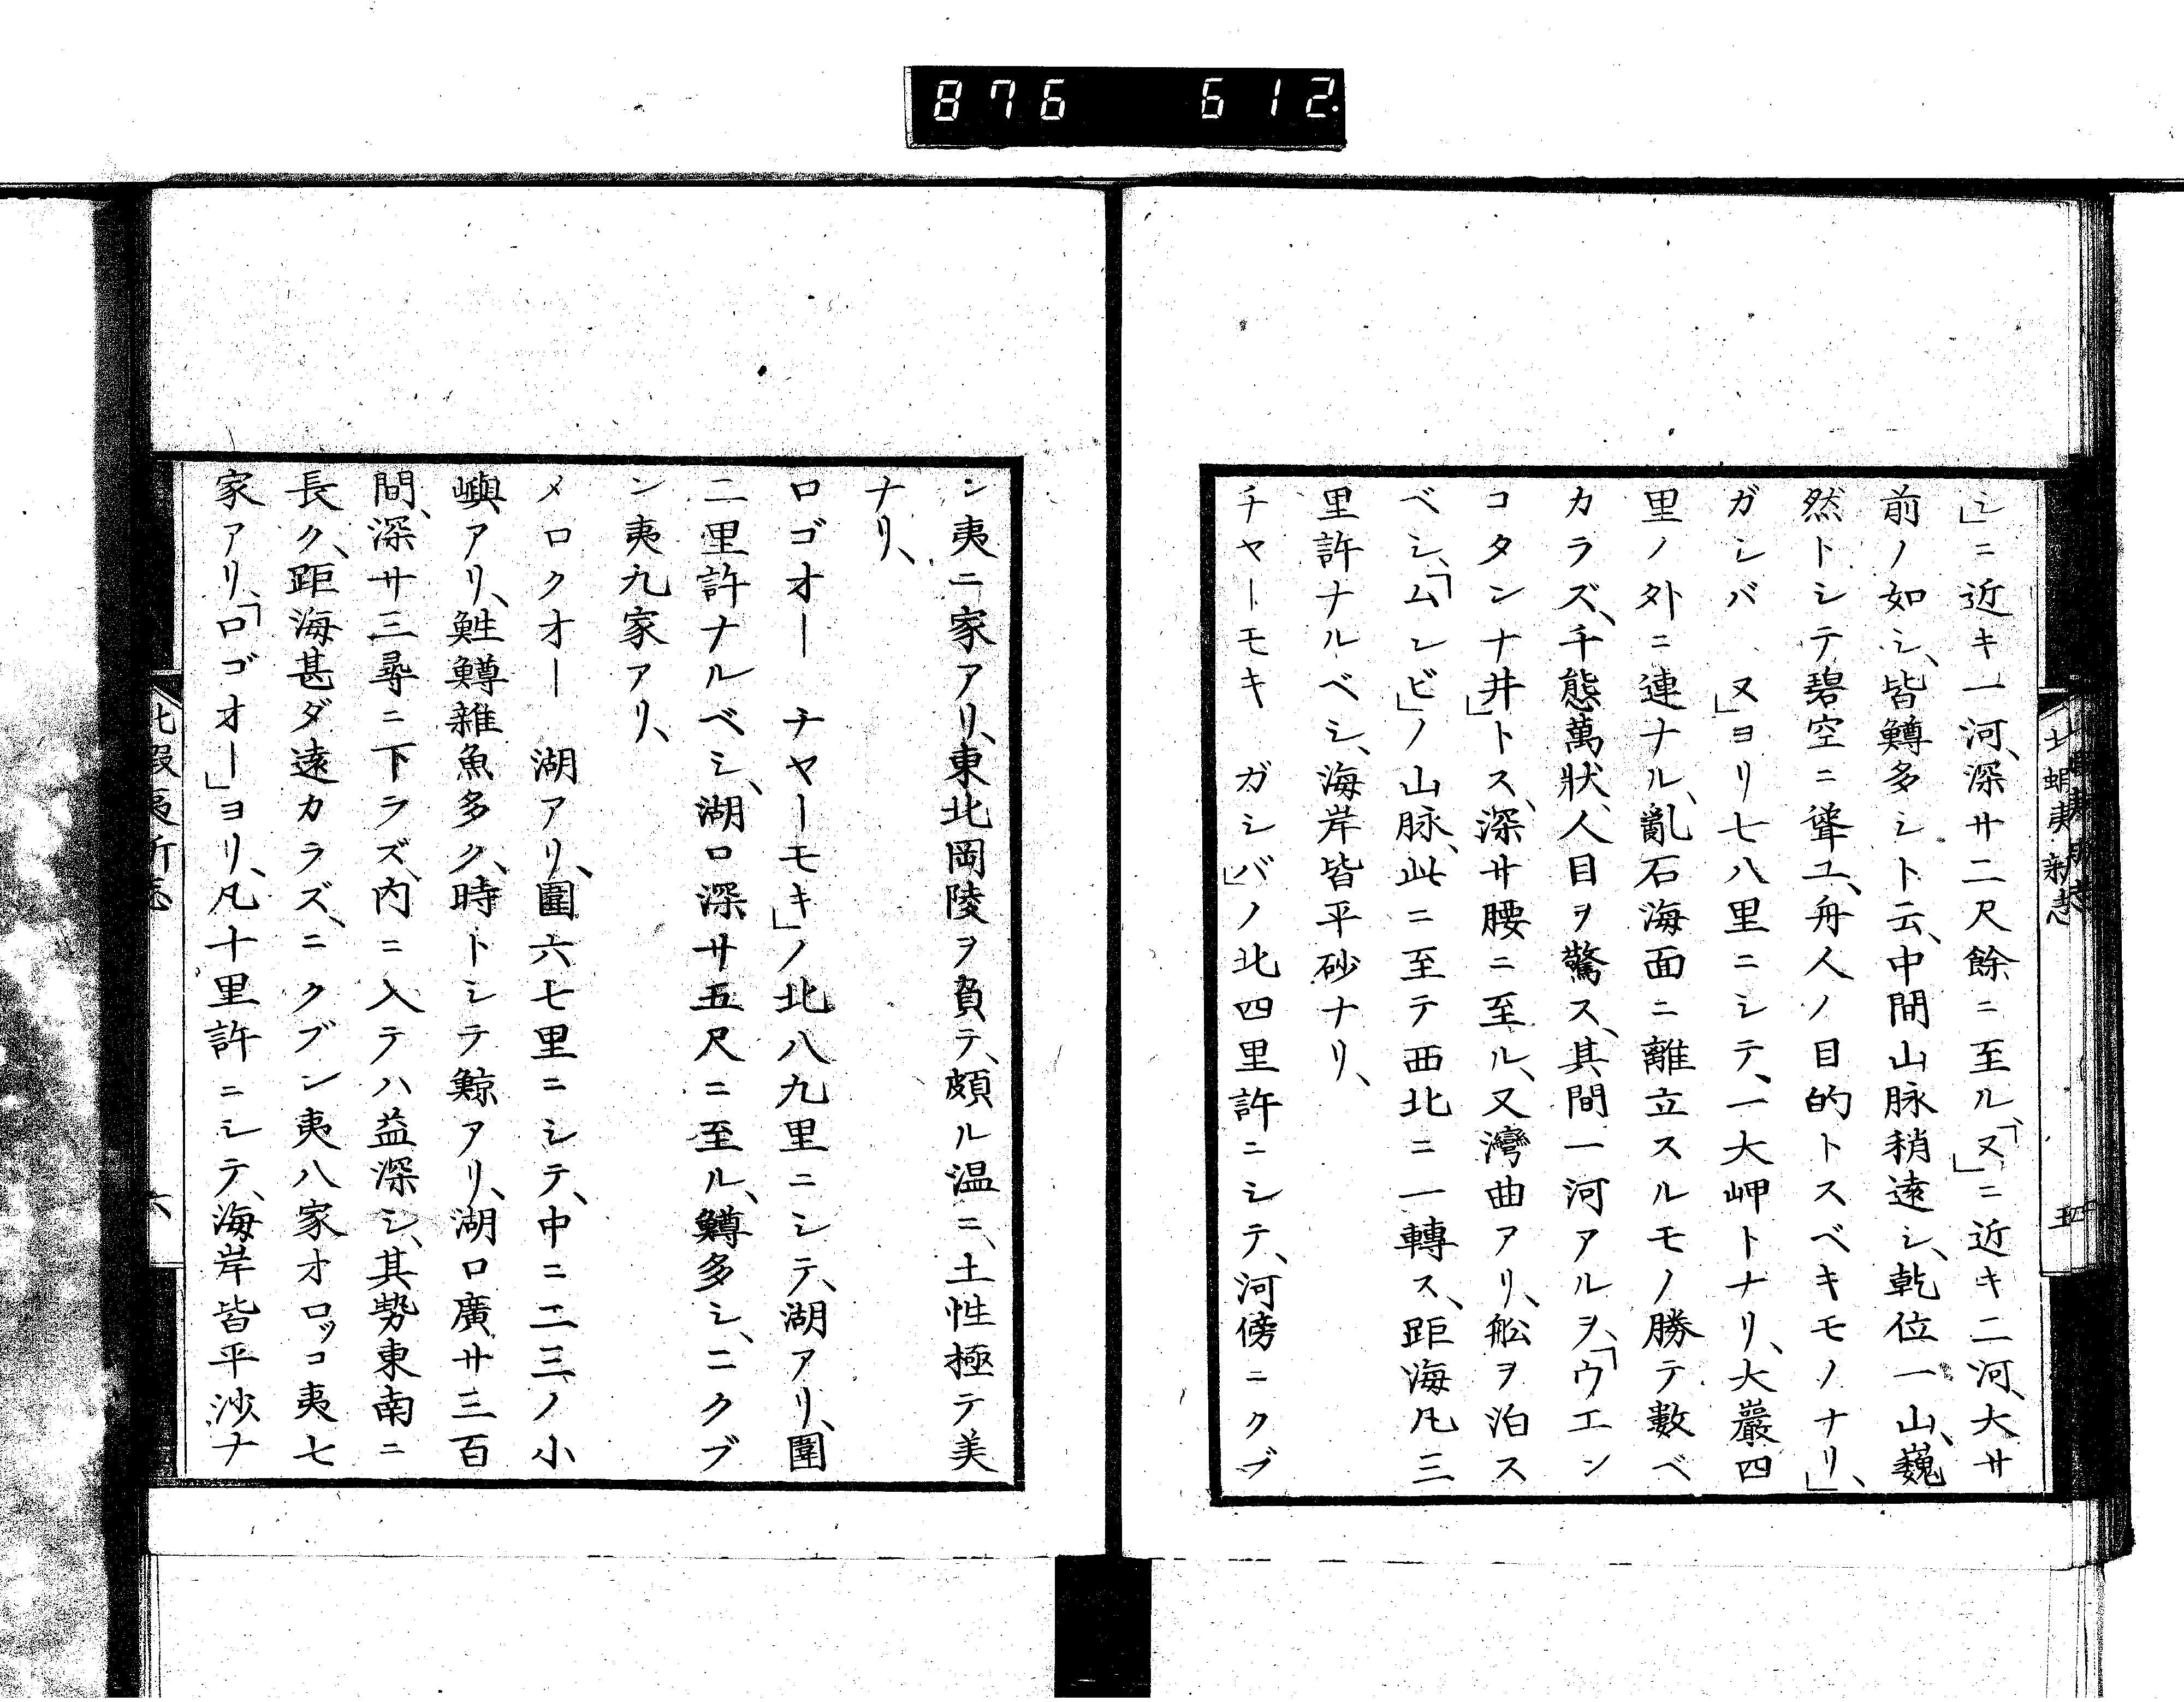 876 612
シ」ニ近キ一河、深サ二尺餘ニ至ル、「ヌ」ニ近キ二河、大サ
前ノ如シ、皆鱒多シト云、中間山脉稍遠シ、乾位一山、巍
然トシテ碧空ニ聳ユ、舟人ノ目的トスベキモノナリ」、
ガシバ ヌ」ヨリ七八里ニシテ、一大岬トナリ、大巖四
里ノ外ニ連ナル、亂石海面ニ離立スルモノ勝テ數ベ
カラズ、千態萬狀、人目ヲ驚ス、其間一河アルヲ、「ウエン
コタンナ井」トス、深サ腰ニ至ル、又灣曲アリ、舩ヲ泊ス
ベシ、「ムシビ」ノ山脉、此ニ至テ西北ニ一轉ス、距海凡三
里許ナルベシ、海岸皆平砂ナリ、
チヤーモキ ガシバ」ノ北四里許ニシテ、河傍ニクブ
ン夷ニ家アリ、東北岡陵ヲ負テ、頗ル温ニ、土性極テ美
ナリ、
ロゴオー チヤーモキ」ノ北八九里ニシテ、湖アリ、圍
二里許ナルベシ、湖口深サ五尺ニ至ル、鱒多シ、ニクブ
ン夷九家アリ、
メロクオー 湖アリ、圍六七里ニシテ、中ニ二三ノ小
嶼アリ、鮏鱒雜魚多ク、時トシテ鯨アリ、湖口廣サ三百
間、深サ三尋ニ下ラズ、内ニ入テハ益深シ、其勢東南ニ
長ク、距海甚ダ遠カラズ、ニクブン夷八家オロッコ夷七
家アリ、「ロゴオー」ヨリ、凡十里許ニシテ、海岸皆平沙ナ
北蝦夷新志
六